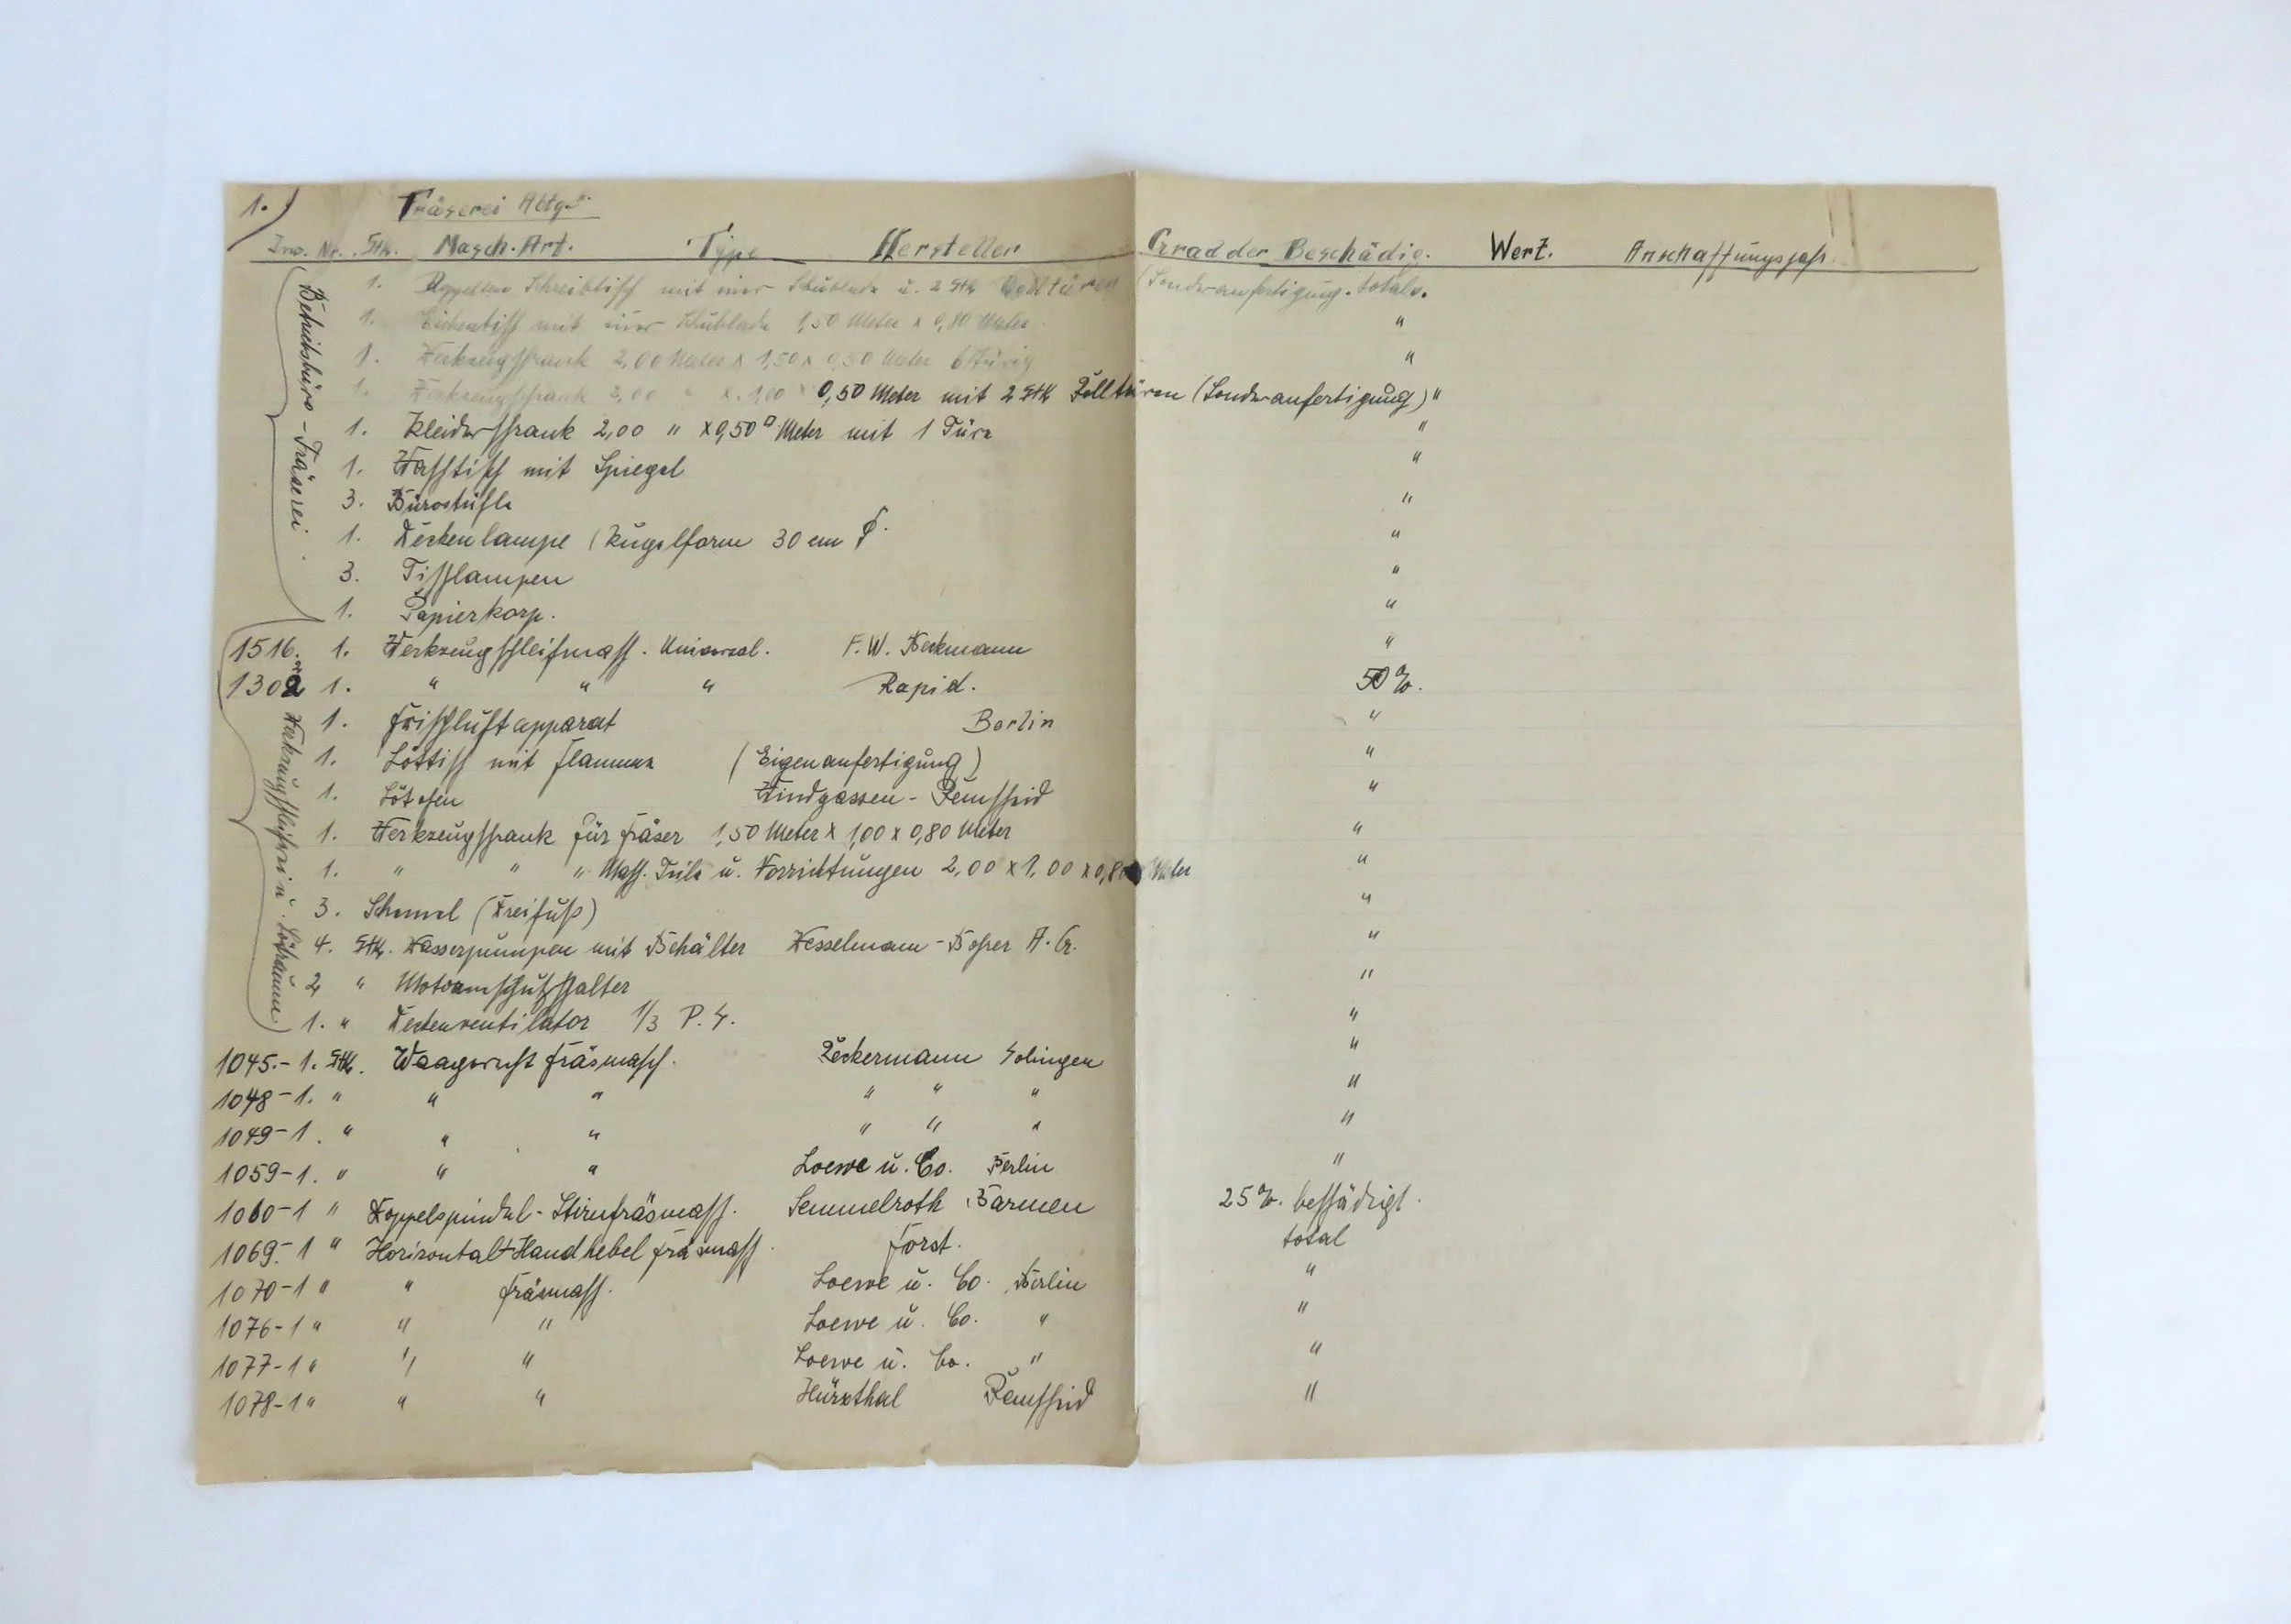 1.) Fräserei Abtg.
Inv. Nr. Stk. Masch. Art. Type Hersteller Grad der Beschädig. Wert. Anschaffungsjahr
Betriebsbüro-Fräserei
1. Doppelter Schreibtisch mit einer Schublade u. 2 Stk Rolltüren (Sonderanfertigung. total.
1. Eichentisch mit einer Schublade 1,50 Meter x 0,80 Meter "
1. Werkzeugschrank 2,00 Meter x 1,50 x 0,50 Meter 6 türig "
1. Werkzeugschrank 2,00 " x 1,00 x 0,50 Meter mit 2 Stk Rolltüren (Sonderanfertigung) "
1. Kleiderschrank 2,00 " x 0,50 □ Meter mit 1 Türe "
1. Waschtisch mit Spiegel "
3. Bürostühle "
1. Deckenlampe (Kugelform 30 cm ∅. "
3. Tischlampen "
1. Papierkorp. "
Werkzeugschleiferei u. Lötraum
1516. 1. Werkzeugschleifmasch. Universal. F. W. Beckmann "
1302 1. " " " Rapid. 50%.
1. Frischluftapparat Berlin "
1. Löttisch mit Flamme (Eigenanfertigung) "
1. Lötofen Windgassen - Remscheid "
1. Werkzeugschrank für Fräser 1,50 Meter x 1,00 x 0,80 Meter "
1. " " " Masch. Teile u. Vorrichtungen 2,00 x 1,00 x 0,80 Meter "
3. Schemel (Dreifuß) "
4. Stk. Wasserpumpen mit Behälter Wesselmann - Bohrer A. G. "
2 " Motorenschutzschalter "
1. " Deckenventilator 1/3 P. S. "
1045.- 1. Stk. Waagerecht Fräsmasch. Leckermann Solingen "
1048 - 1. " " " " " " "
1049 - 1. " " " " " " "
1059 - 1. " " " Loewe u. Co. Berlin "
1060 - 1 " Doppelspindel - Stirnfräsmasch. Semmelroth Barmen 25%. beschädigt.
1069 - 1 " Horizontal + Handhebel fräsmasch. Forst. total
1070 - 1 " " Fräsmasch. Loewe u. Co. Berlin "
1076 - 1 " " " Loewe u. Co. " "
1077 - 1 " " " Loewe u. Co. " "
1078 - 1 " " " Hürxthal Remscheid "